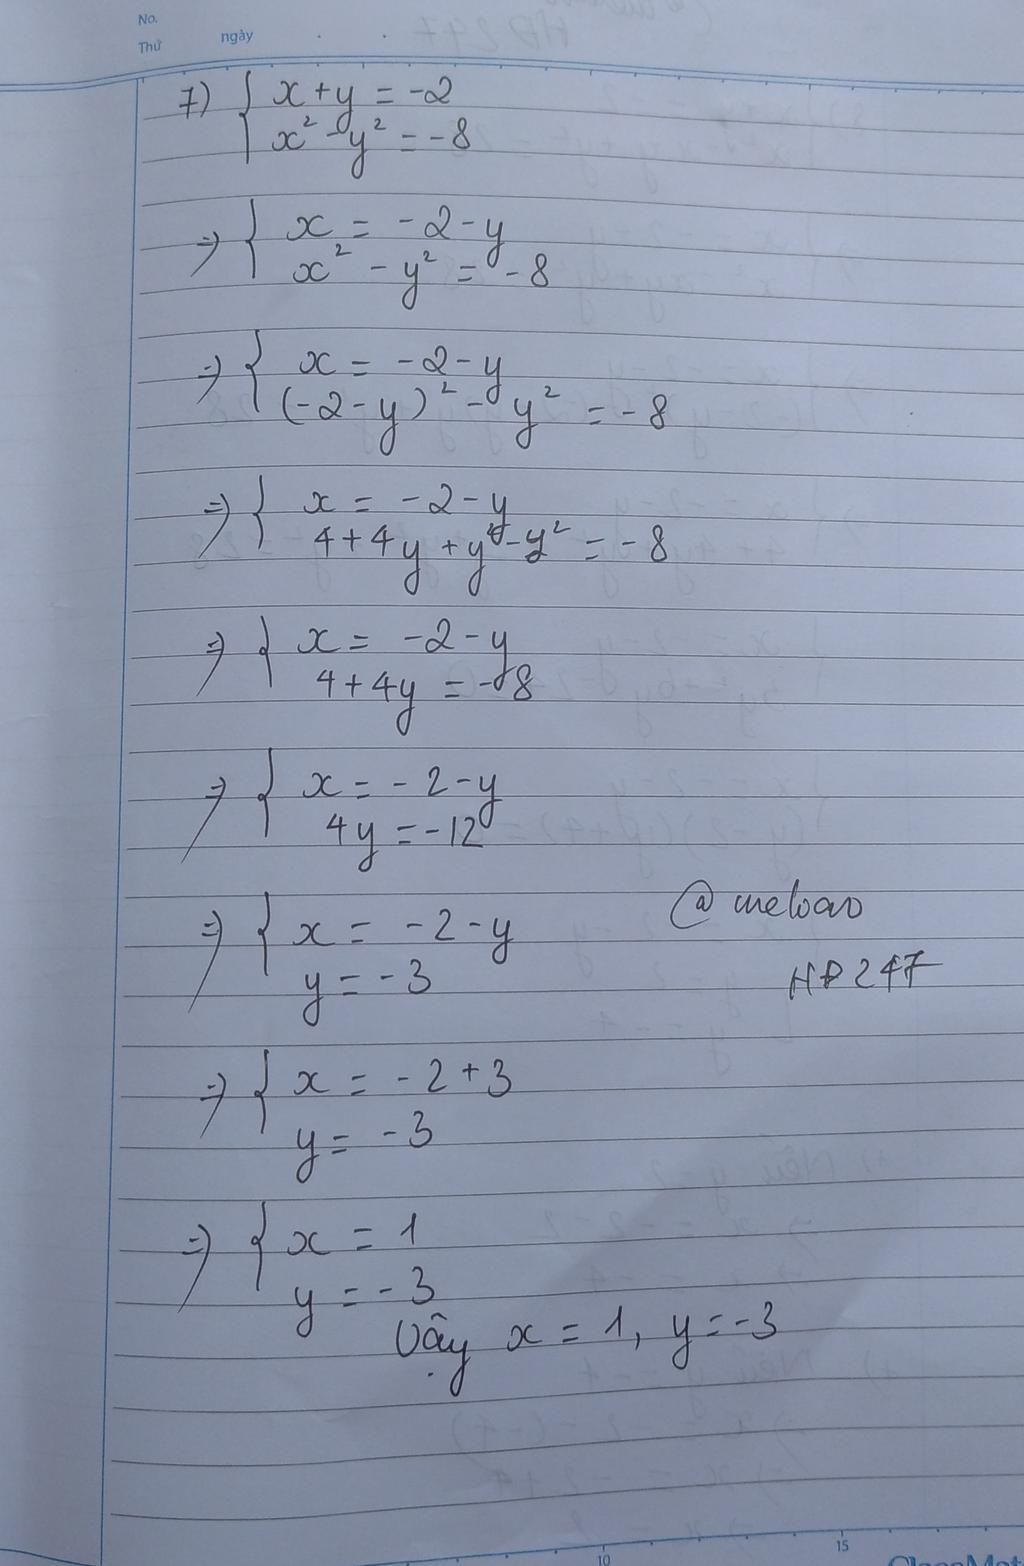 No.
Thứ ngày . .
7) { x + y = -2
x² - y² = -8
=> { x = -2 - y
x² - y² = -8
=> { x = -2 - y
(-2 - y)² - y² = -8
=> { x = -2 - y
4 + 4y + y² - y² = -8
=> { x = -2 - y
4 + 4y = -8
=> { x = -2 - y
4y = -12
=> { x = -2 - y
y = -3
@ meloan
HD247
=> { x = -2 + 3
y = -3
=> { x = 1
y = -3
Vậy x = 1, y = -3
10 15